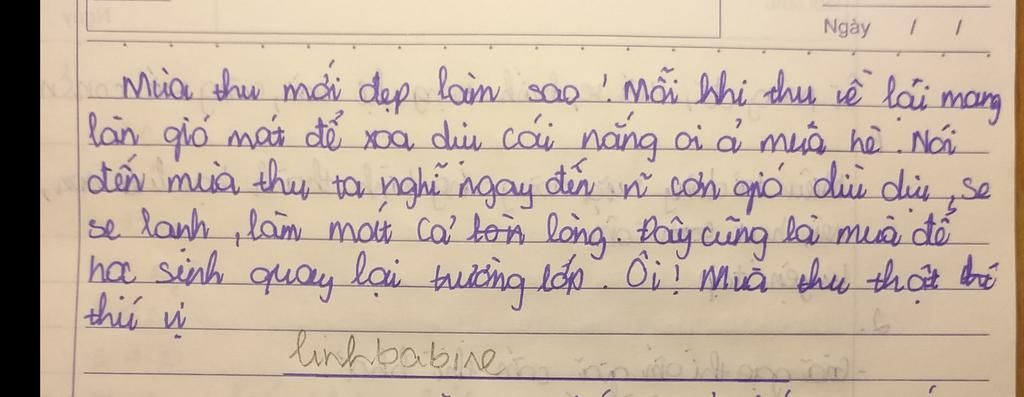 Ngày / /
Mùa thu mới đẹp làm sao! Mỗi khi thu về lại mang
làn gió mát để xoa dịu cái nắng oi ả mùa hè. Nói
đến mùa thu ta nghĩ ngay đến cơn gió dìu dịu, se
se lạnh, làm mát cả lòng. Đây cũng là mùa để
học sinh quay lại trường lớp. Ôi! Mùa thu thật
thú vị
linhbabine